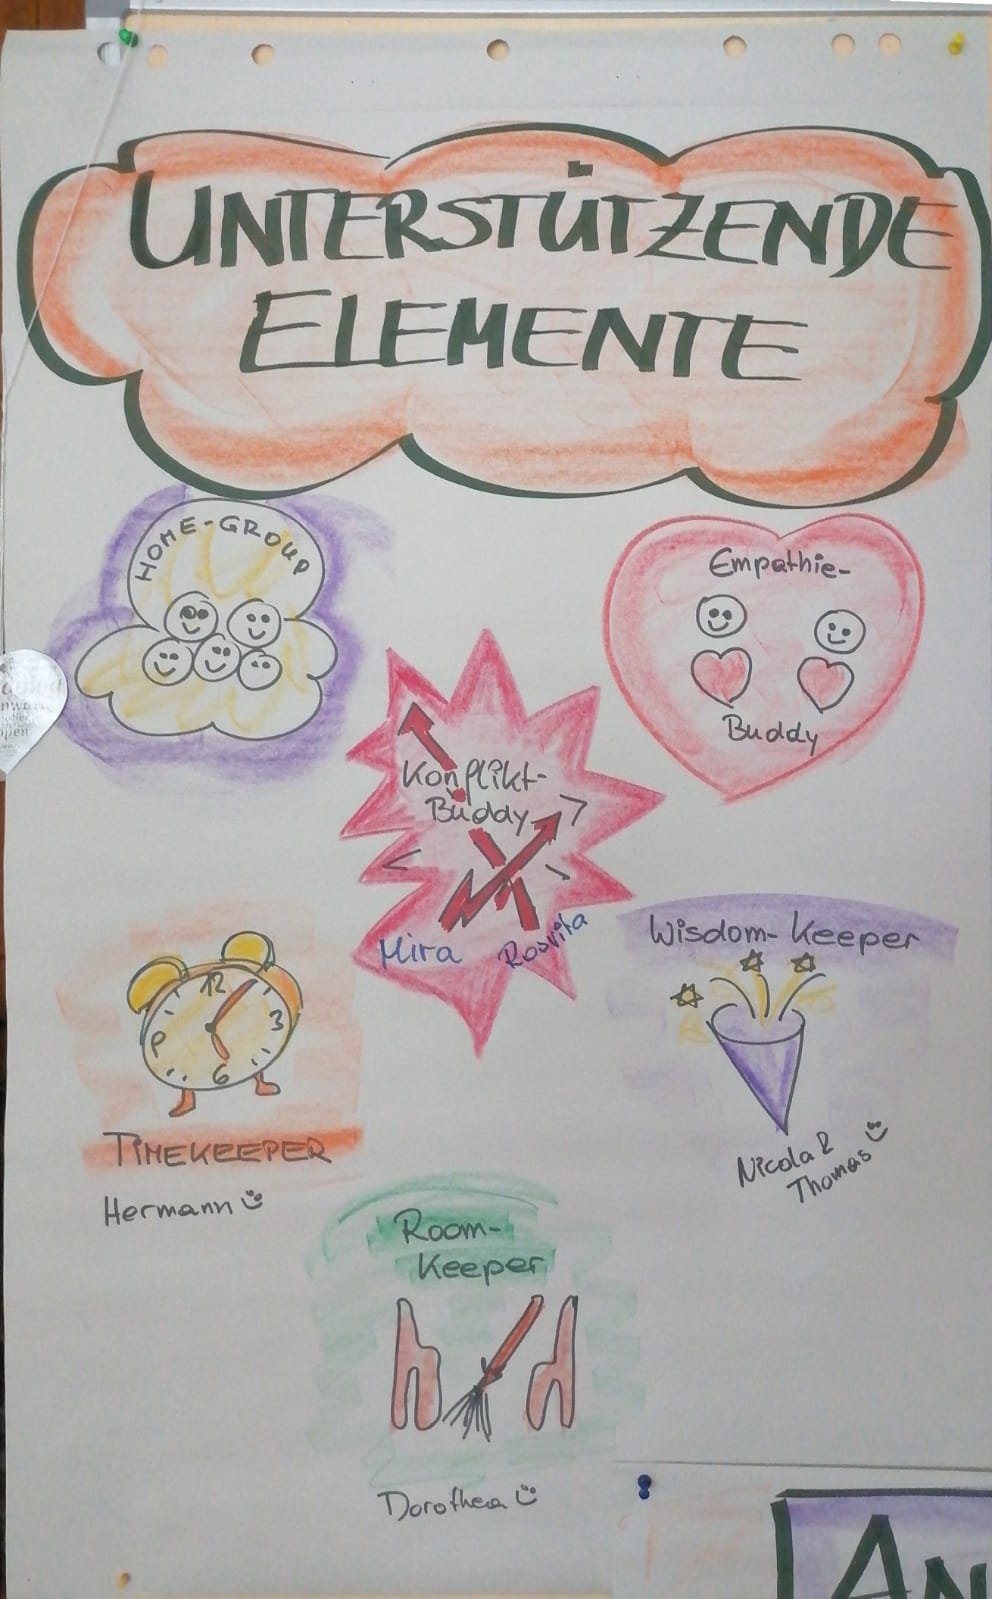 UNTERSTÜTZENDE
ELEMENTE
HOME-GROUP
Empathie-
Buddy
Konflikt-
Buddy
Mira
Rosvita
12
3
6
9
TIMEKEEPER
Hermann
Wisdom-Keeper
Nicola &
Thomas
Room-
Keeper
Dorothea
AN